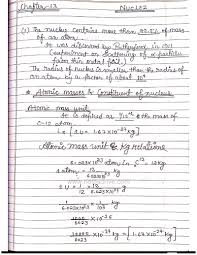 Chapter-13 NUCLEI
(1) The nucleus contains more than 99.9% of mass
of an atom.
It was discovered by Rutherford in 1911
experiment on scattering of α-particle
from thin metal foil.
The radius of nucleus is smaller than the radius of
an atom by a factor of about 10⁴
* Atomic masses & Constituent of nucleus
Atomic mass unit
It is defined as 1/12th of the mass of
C-12 atom.
1u = 1.67×10⁻²⁷ kg
Atomic mass unit & kg relation
6.023×10²³ atom in C¹² = 12 kg
1 atom = 12 / 6.023×10²³
1u = 1/12 × 12 / 6.023
1 / 6.023×10²³
× 10⁻²⁶
6023
kg = 1.67×10⁻²⁷ kg
6023